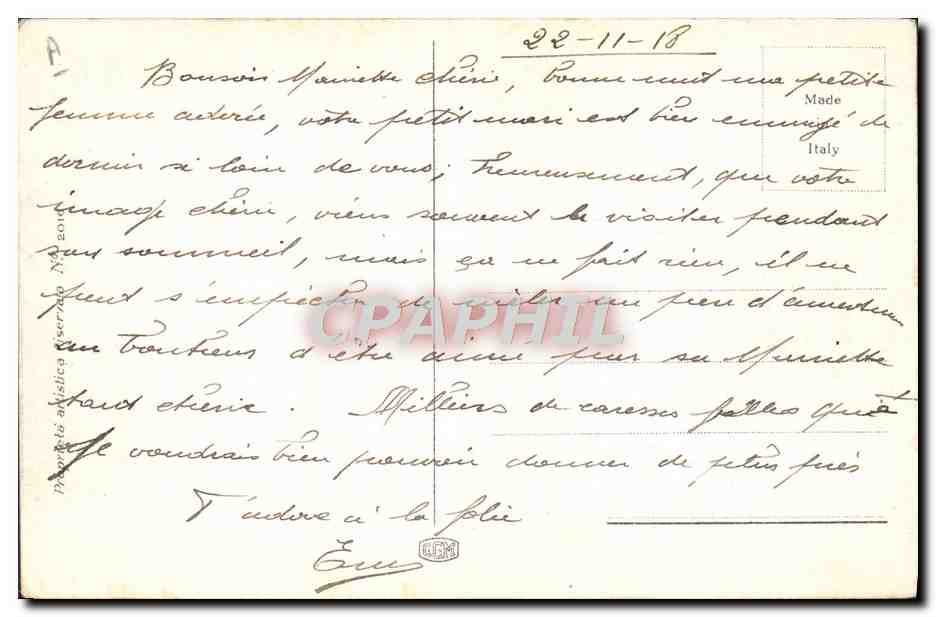 22-11-18
A
Bonsoir Mariette chérie, bonne nuit ma petite
femme adorée, votre petit mari est bien ennuyé de
dormir si loin de vous; heureusement, que votre
image chérie, viens souvent le visiter pendant
son sommeil, mais ça ne fait rien, il ne
peut s'empêcher de mêler un peu d'amertume
au bonheur d'être aimé par sa Mariette
tant chérie. Milliers de caresses folles que
je voudrais bien pouvoir donner de plus près
T'adore à la folie
Made
Italy
Proprietà artistica riservata No
CPAPHIL
GGM